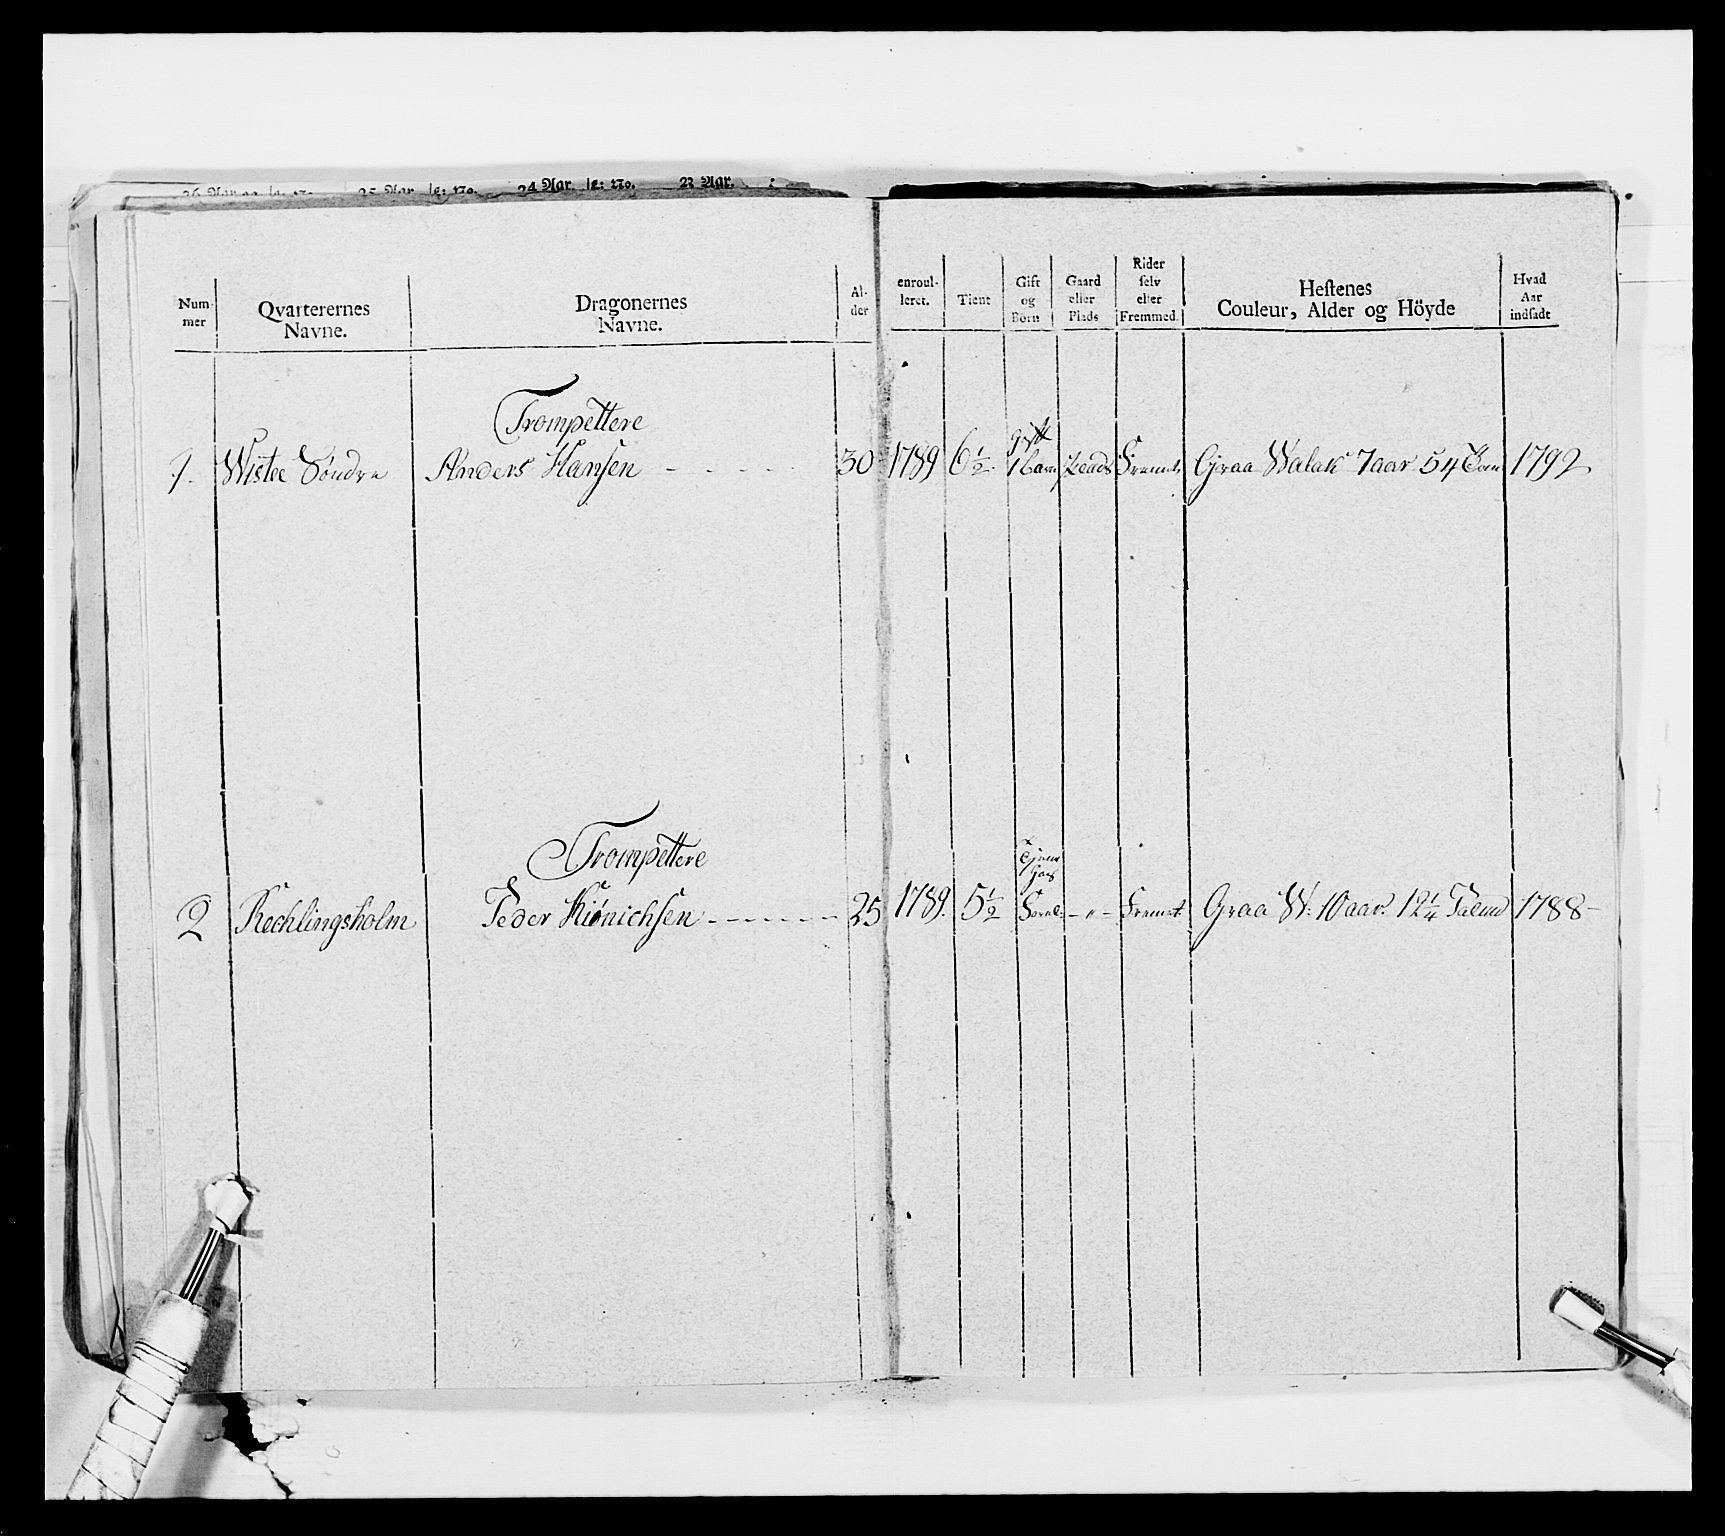 25 Aar. 24 Aar. No. 23 Aar.
Num-
mer
Qvarterernes
Navne.
Dragonernes
Navne.
Al-
der
enroul-
leret.
Tient
Gift
og
Börn
Gaard
eller
Plads
Rider
selv
eller
Fremmed.
Hestenes
Couleur, Alder og Höyde
Hvad
Aar
indsadt
Trompettere
1. Wistee Söndre Anders Hansen 30 1789 6½ Gift 1 Barn Plads Fremt Graa Walak 7 aar 54 Tom 1792
Trompettere
2 Rechlingsholm Peder Kiönichsen 25 1789. 5½ Fremt. Graa W: 10 aar. 12¼ 1788